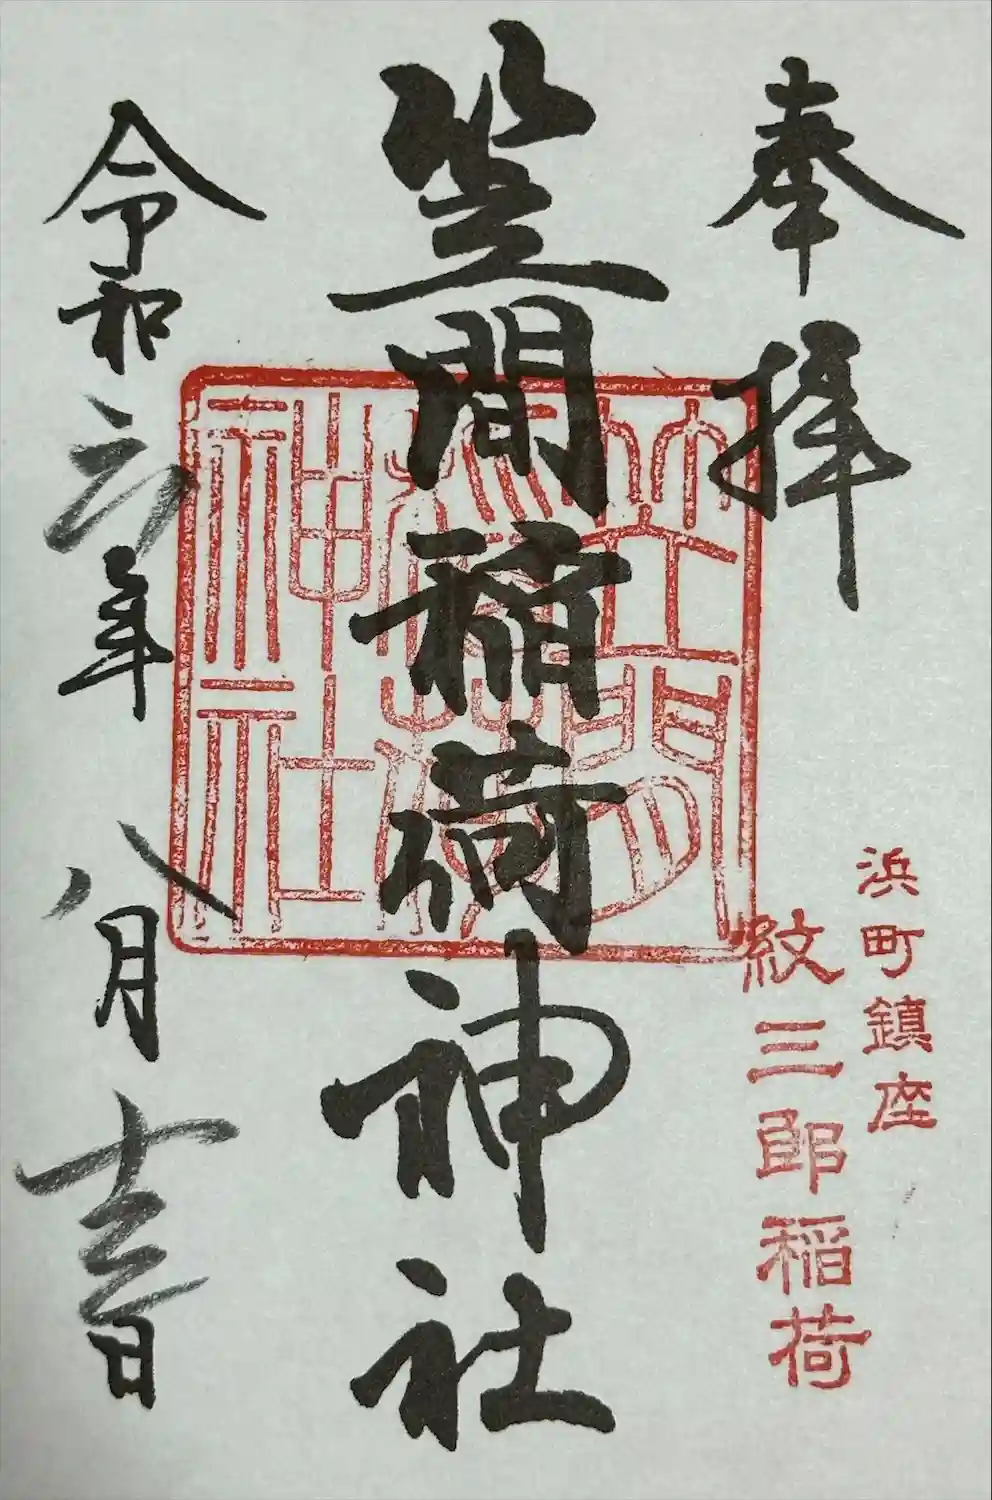 奉拝
浜町鎮座
紋三郎稲荷
笠間稲荷神社
笠間
稲荷
神社
令和六年八月十三日